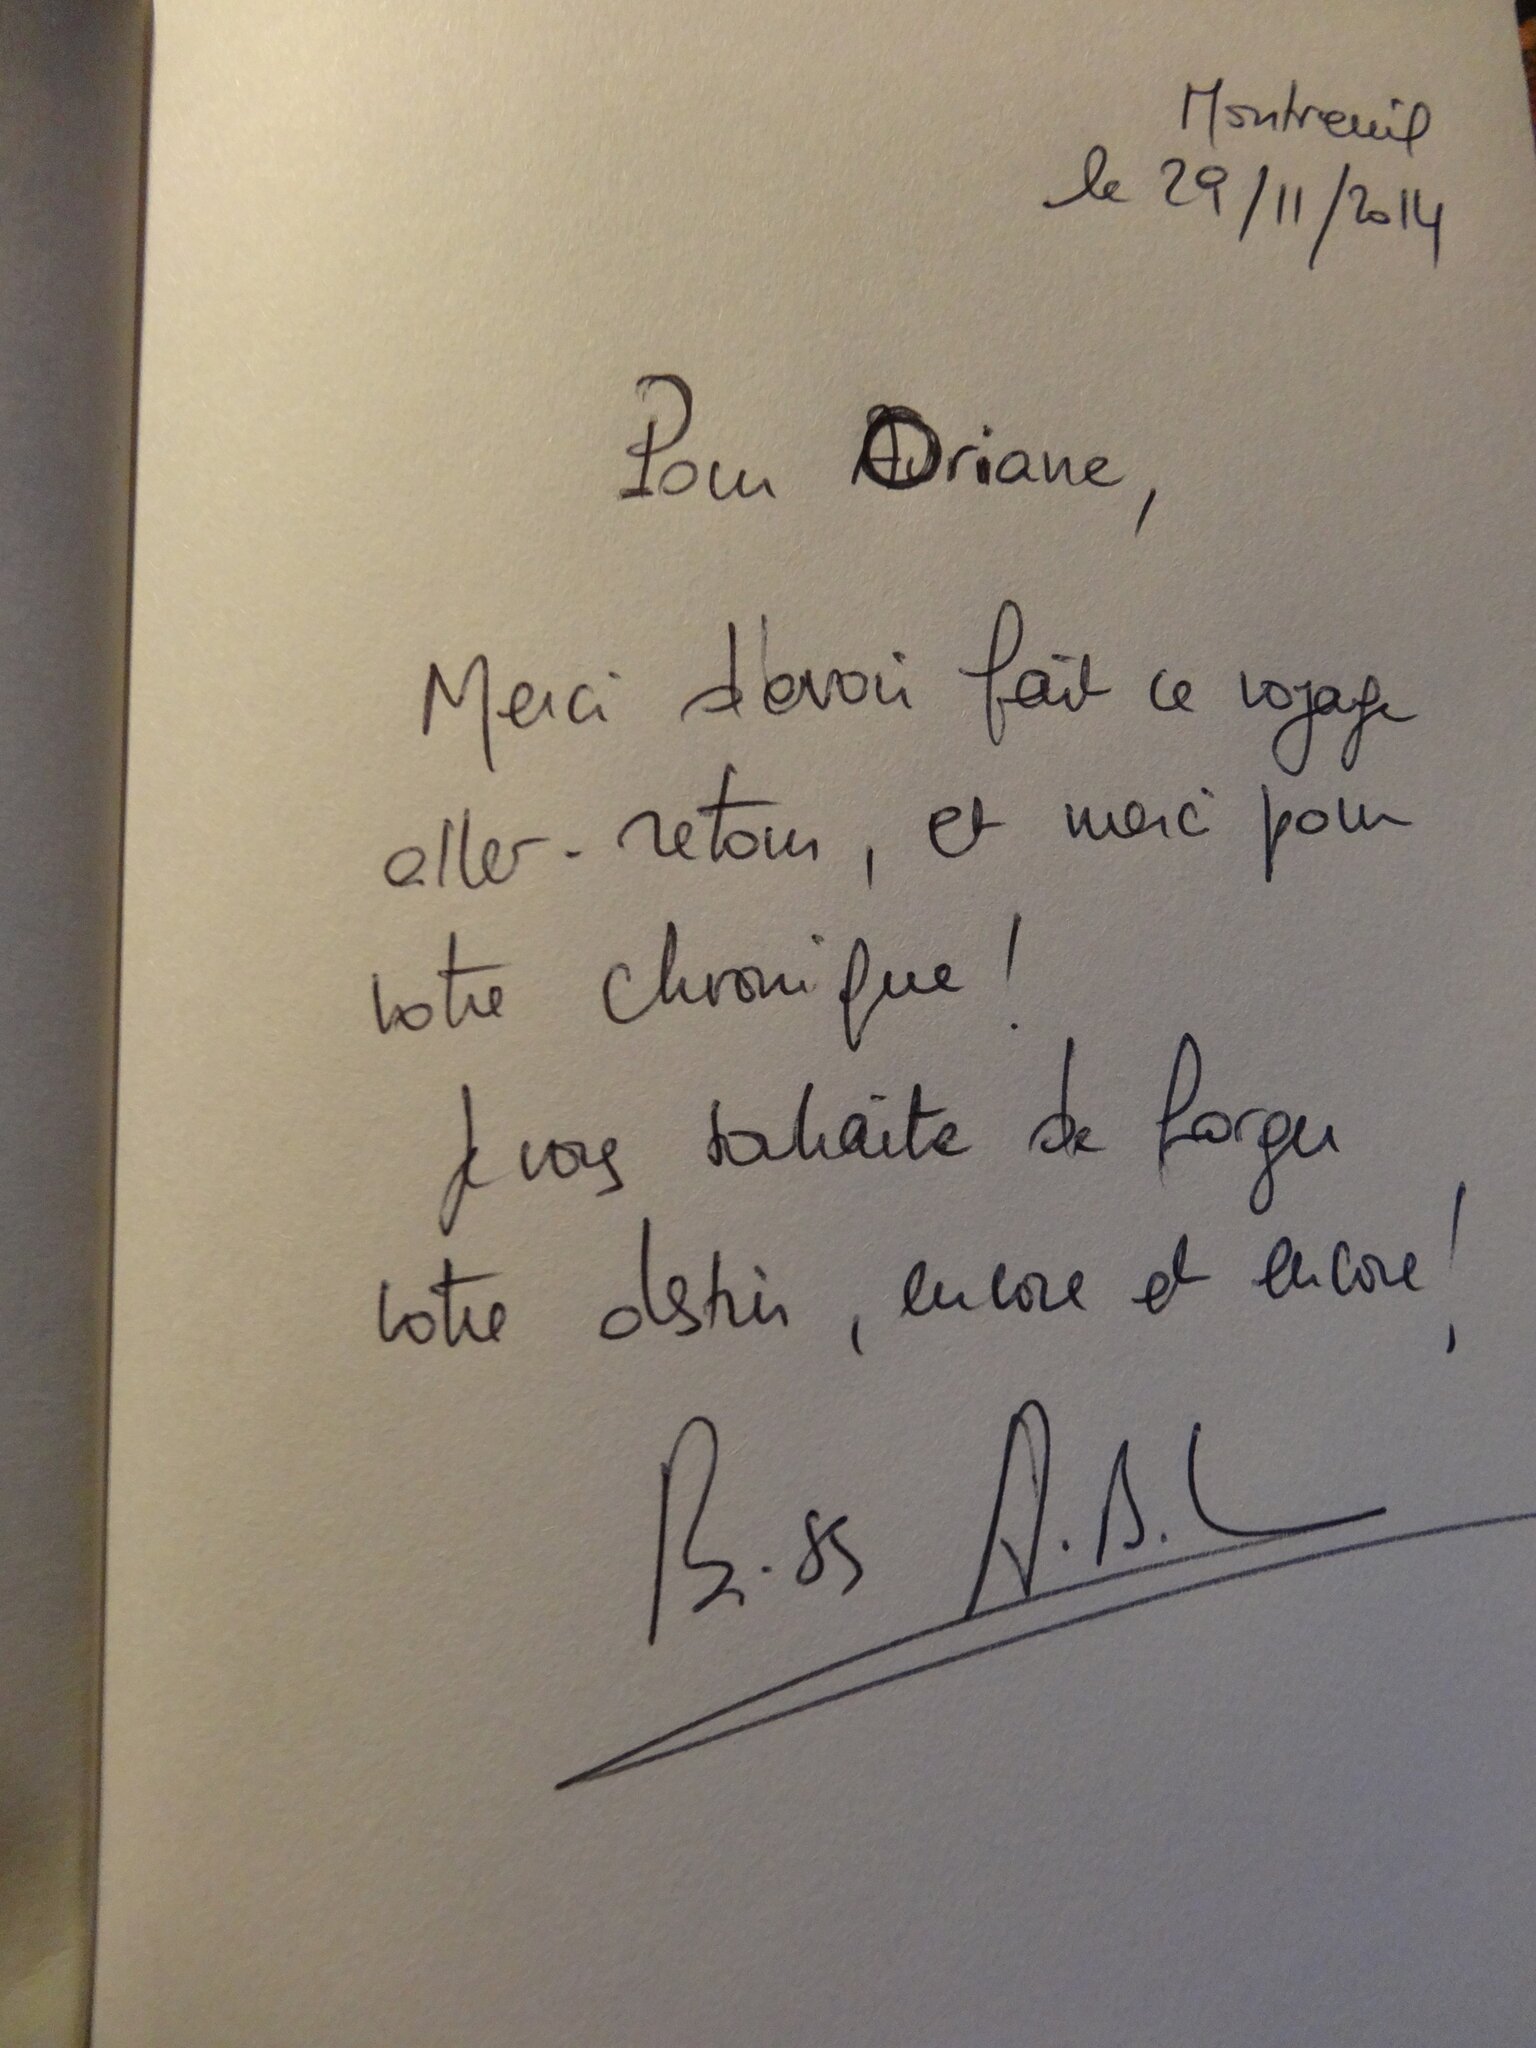 Montreuil
le 29/11/2014
Pour Oriane,
Merci d'avoir fait ce voyage
aller-retour, et merci pour
votre chronique !
Je vous souhaite de forger
votre destin, encore et encore !